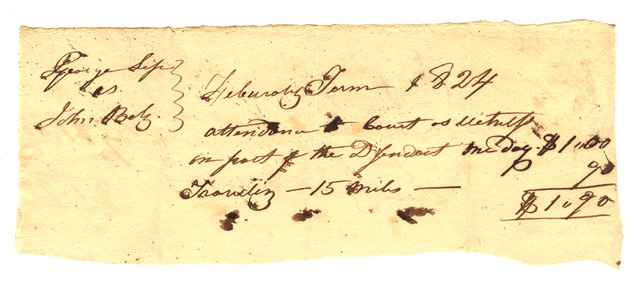 George Sip
vs.
John Betz
February Term 1824
attendance to Court as Witness
on part of the Defendant one day $1.00
Traveling — 15 miles — 90
$1.90